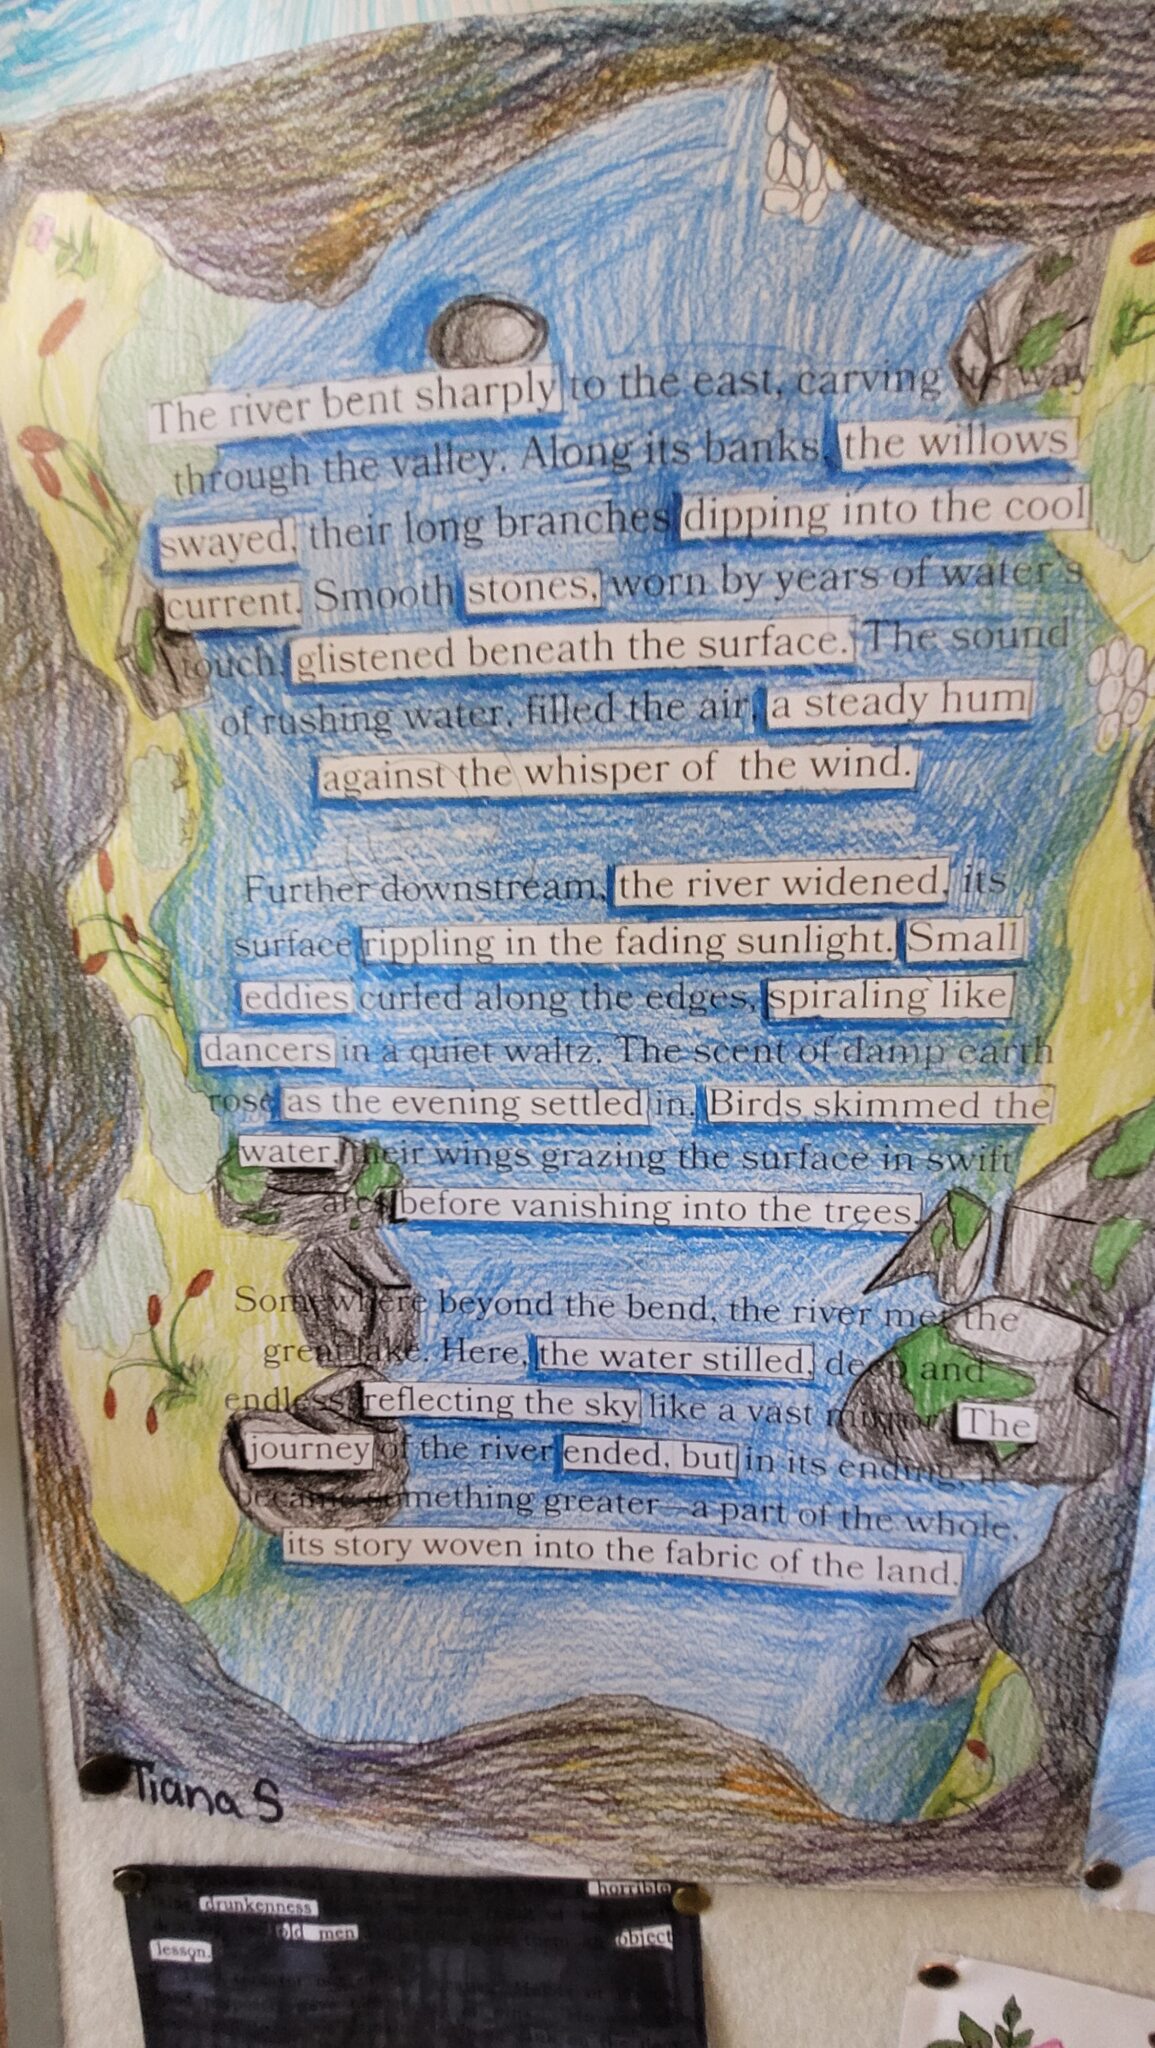 The river bent sharply to the east, carving its way
through the valley. Along its banks, the willows
swayed, their long branches dipping into the cool
current. Smooth stones, worn by years of water's
touch, glistened beneath the surface. The sound
of rushing water, filled the air, a steady hum
against the whisper of the wind.
Further downstream, the river widened, its
surface rippling in the fading sunlight. Small
eddies curled along the edges, spiraling like
dancers in a quiet waltz. The scent of damp earth
rose as the evening settled in. Birds skimmed the
water, their wings grazing the surface in swift
arcs before vanishing into the trees.
Somewhere beyond the bend, the river met the
great lake. Here, the water stilled, deep and
endless, reflecting the sky like a vast mirror. The
journey of the river ended, but in its ending, it
became something greater—a part of the whole,
its story woven into the fabric of the land.
Tiana S
horrible
drunkenness
old men object
lesson.